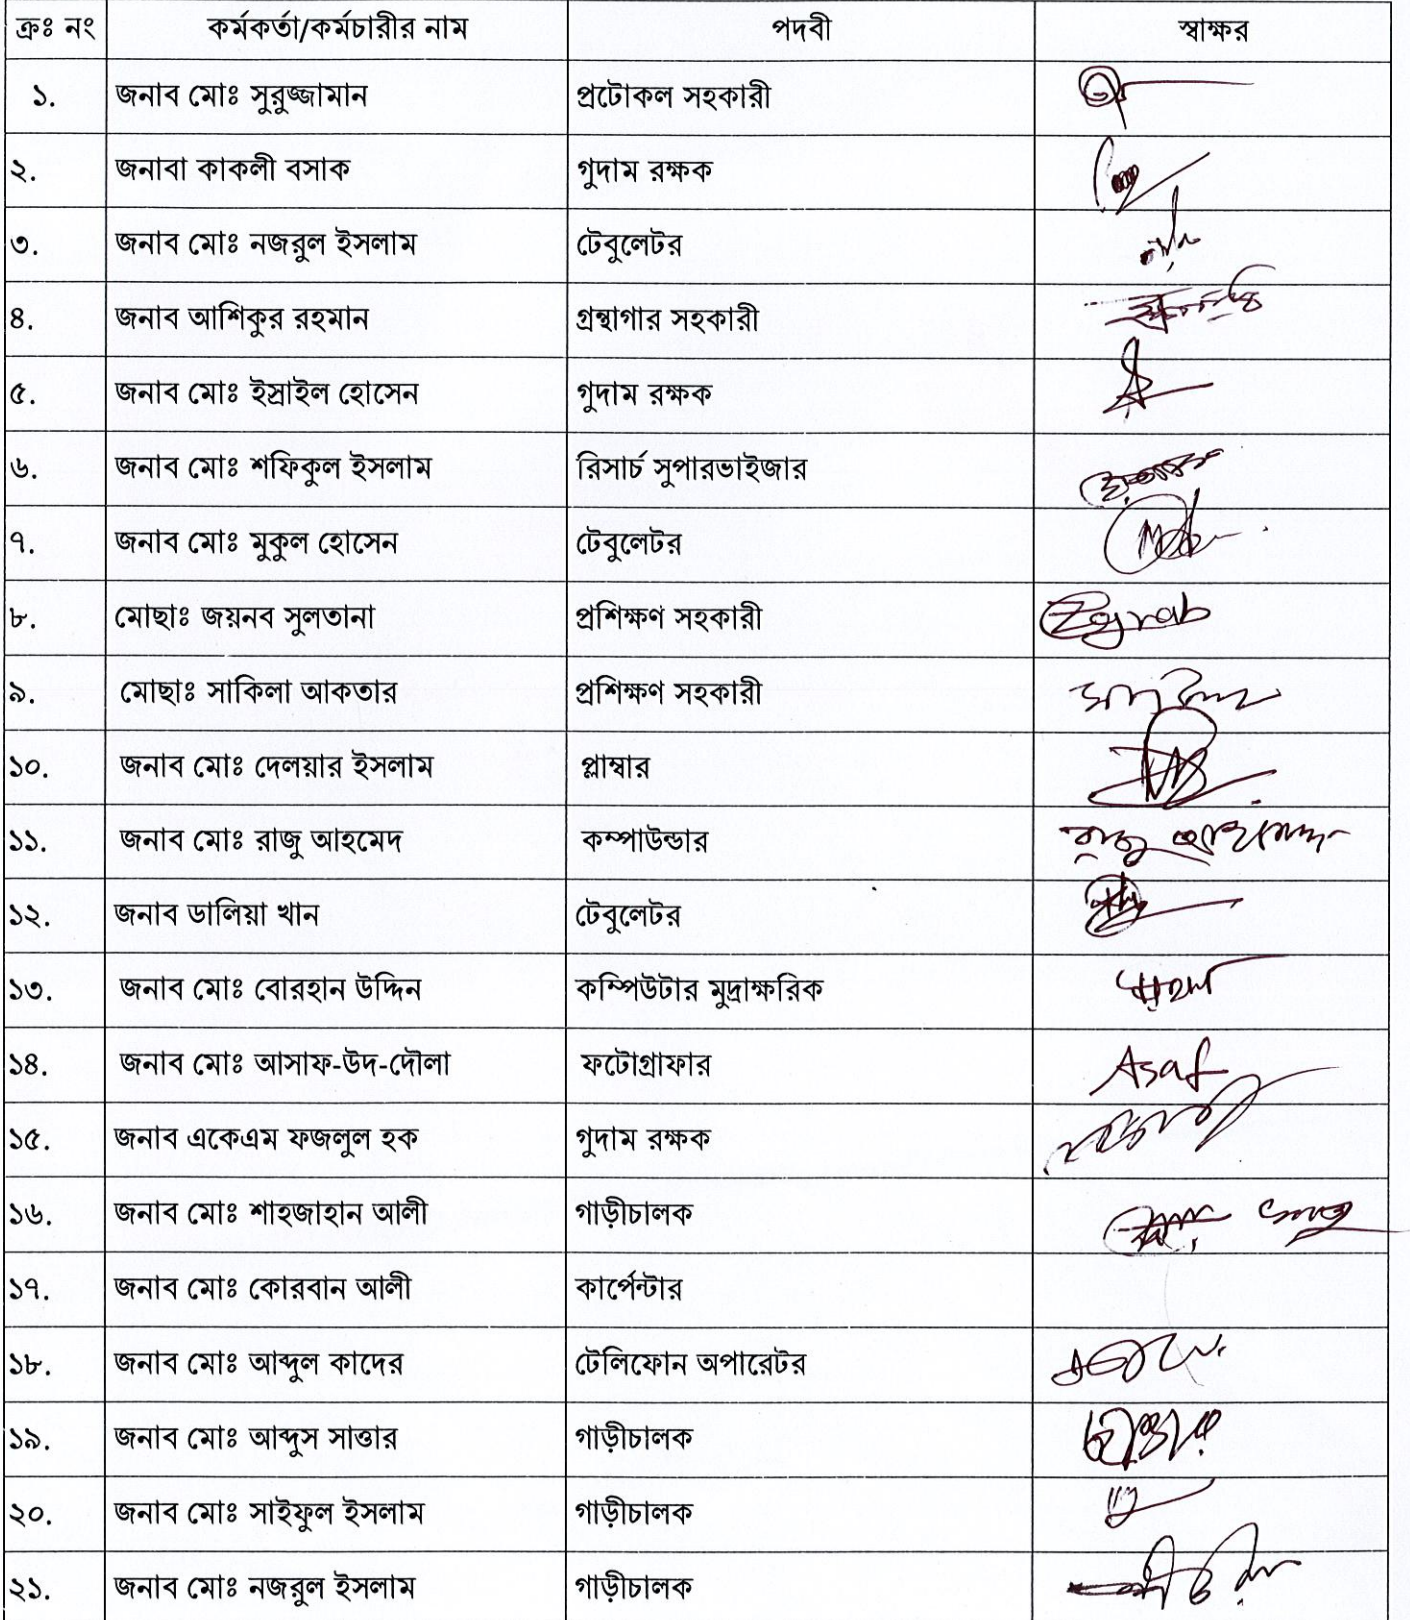 ক্রঃ নং কর্মকর্তা/কর্মচারীর নাম পদবী স্বাক্ষর
১. জনাব মোঃ সুরুজ্জামান প্রটোকল সহকারী
২. জনাবা কাকলী বসাক গুদাম রক্ষক
৩. জনাব মোঃ নজরুল ইসলাম টেবুলেটর
৪. জনাব আশিকুর রহমান গ্রন্থাগার সহকারী
৫. জনাব মোঃ ইস্রাইল হোসেন গুদাম রক্ষক
৬. জনাব মোঃ শফিকুল ইসলাম রিসার্চ সুপারভাইজার
৭. জনাব মোঃ মুকুল হোসেন টেবুলেটর
৮. মোছাঃ জয়নব সুলতানা প্রশিক্ষণ সহকারী Zaynab
৯. মোছাঃ সাকিলা আকতার প্রশিক্ষণ সহকারী
১০. জনাব মোঃ দেলয়ার ইসলাম প্লাম্বার
১১. জনাব মোঃ রাজু আহমেদ কম্পাউন্ডার রাজু আহমেদ
১২. জনাব ডালিয়া খান টেবুলেটর
১৩. জনাব মোঃ বোরহান উদ্দিন কম্পিউটার মুদ্রাক্ষরিক
১৪. জনাব মোঃ আসাফ-উদ-দৌলা ফটোগ্রাফার Asaf
১৫. জনাব একেএম ফজলুল হক গুদাম রক্ষক
১৬. জনাব মোঃ শাহজাহান আলী গাড়ীচালক
১৭. জনাব মোঃ কোরবান আলী কার্পেন্টার
১৮. জনাব মোঃ আব্দুল কাদের টেলিফোন অপারেটর
১৯. জনাব মোঃ আব্দুস সাত্তার গাড়ীচালক
২০. জনাব মোঃ সাইফুল ইসলাম গাড়ীচালক
২১. জনাব মোঃ নজরুল ইসলাম গাড়ীচালক